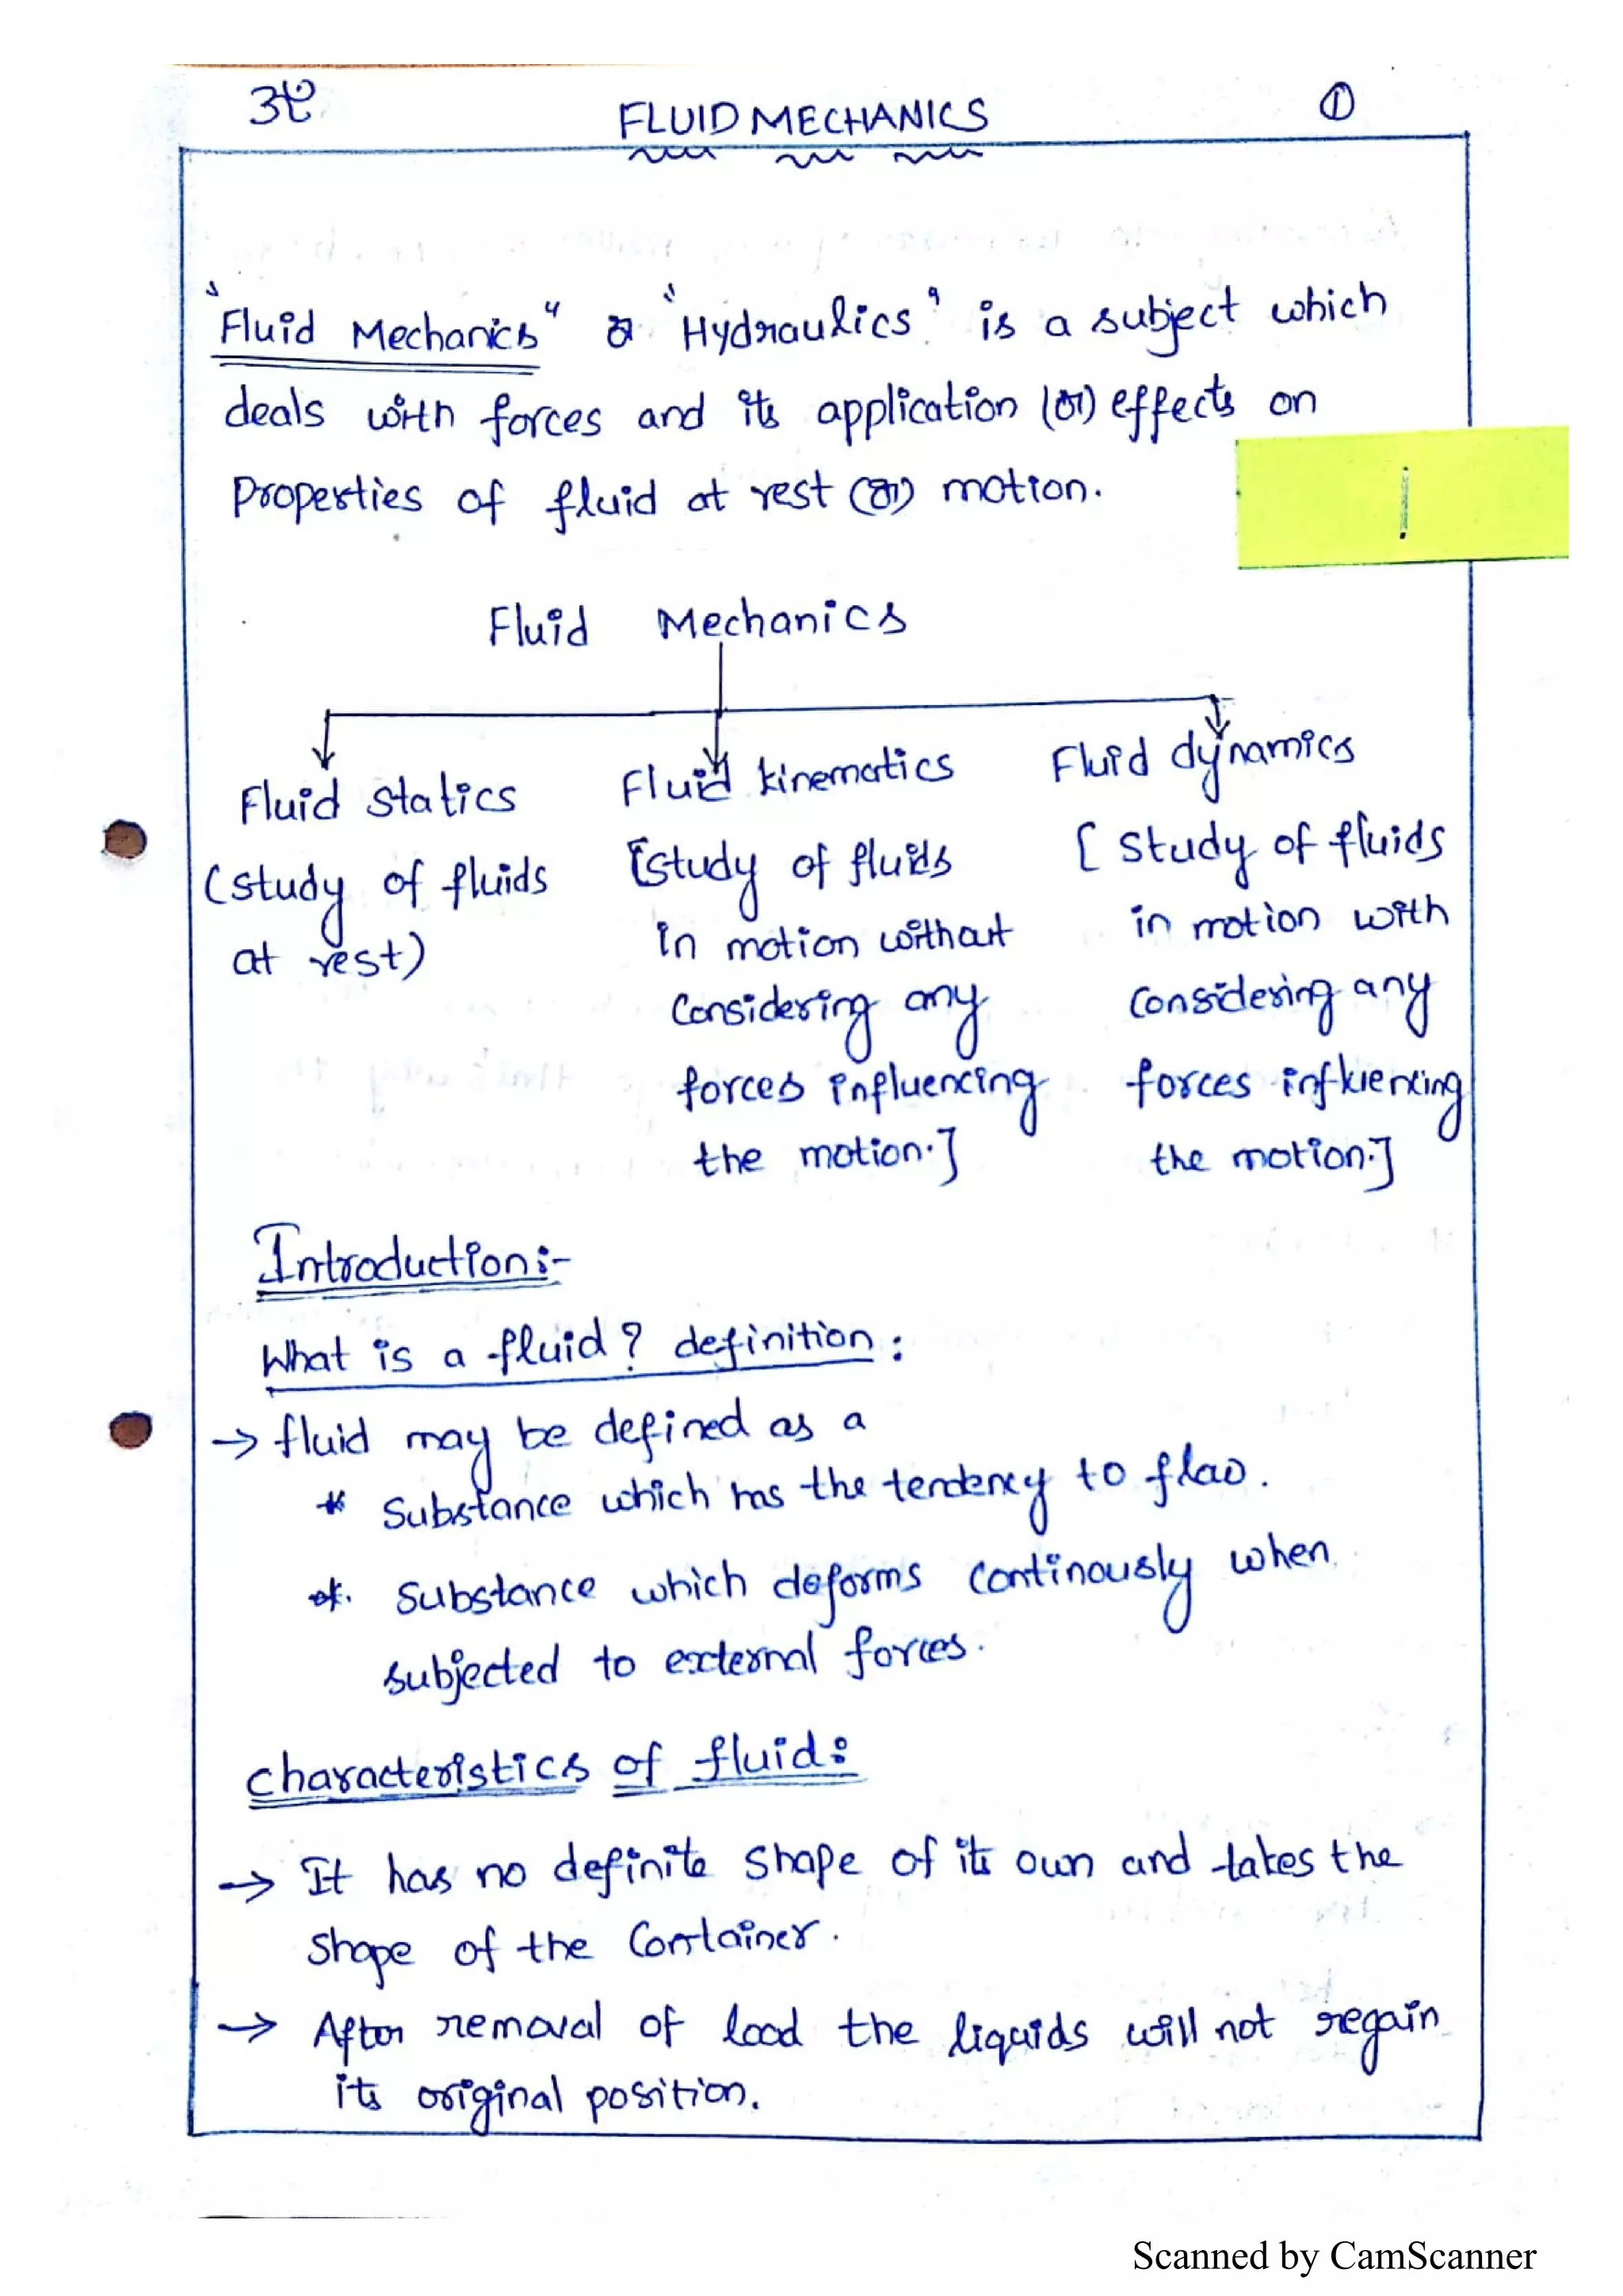 FLUID MECHANICS
①
"Fluid Mechanics" or "Hydraulics" is a subject which
deals with forces and its application (or) effects on
Properties of fluid at rest (or) motion.
Fluid Mechanics
Fluid statics
(study of fluids
at rest)
Fluid kinematics
[study of fluids
in motion without
Considering any
forces influencing
the motion.]
Fluid dynamics
[study of fluids
in motion with
Considering any
forces influencing
the motion.]
Introduction:-
What is a fluid? definition:
→ fluid may be defined as a
* Substance which has the tendency to flow.
*. Substance which deforms continously when
subjected to external forces.
characteristics of fluid:
→ It has no definite shape of its own and takes the
shape of the Container.
→ After removal of load the liquids will not regain
its original position.
Scanned by CamScanner